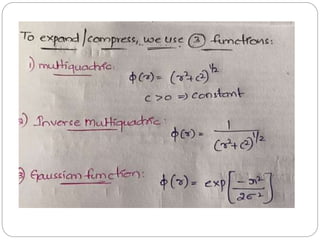 To expand/compress, we use ③ functions:
1) multiquadric:
ϕ(r) = (r²+c²)^1/2
c>0 ⇒ constant
2) Inverse multiquadric:
ϕ(r) = 1/(r²+c²)^1/2
3) Gaussian function:
ϕ(r) = exp[-r²/2σ²]